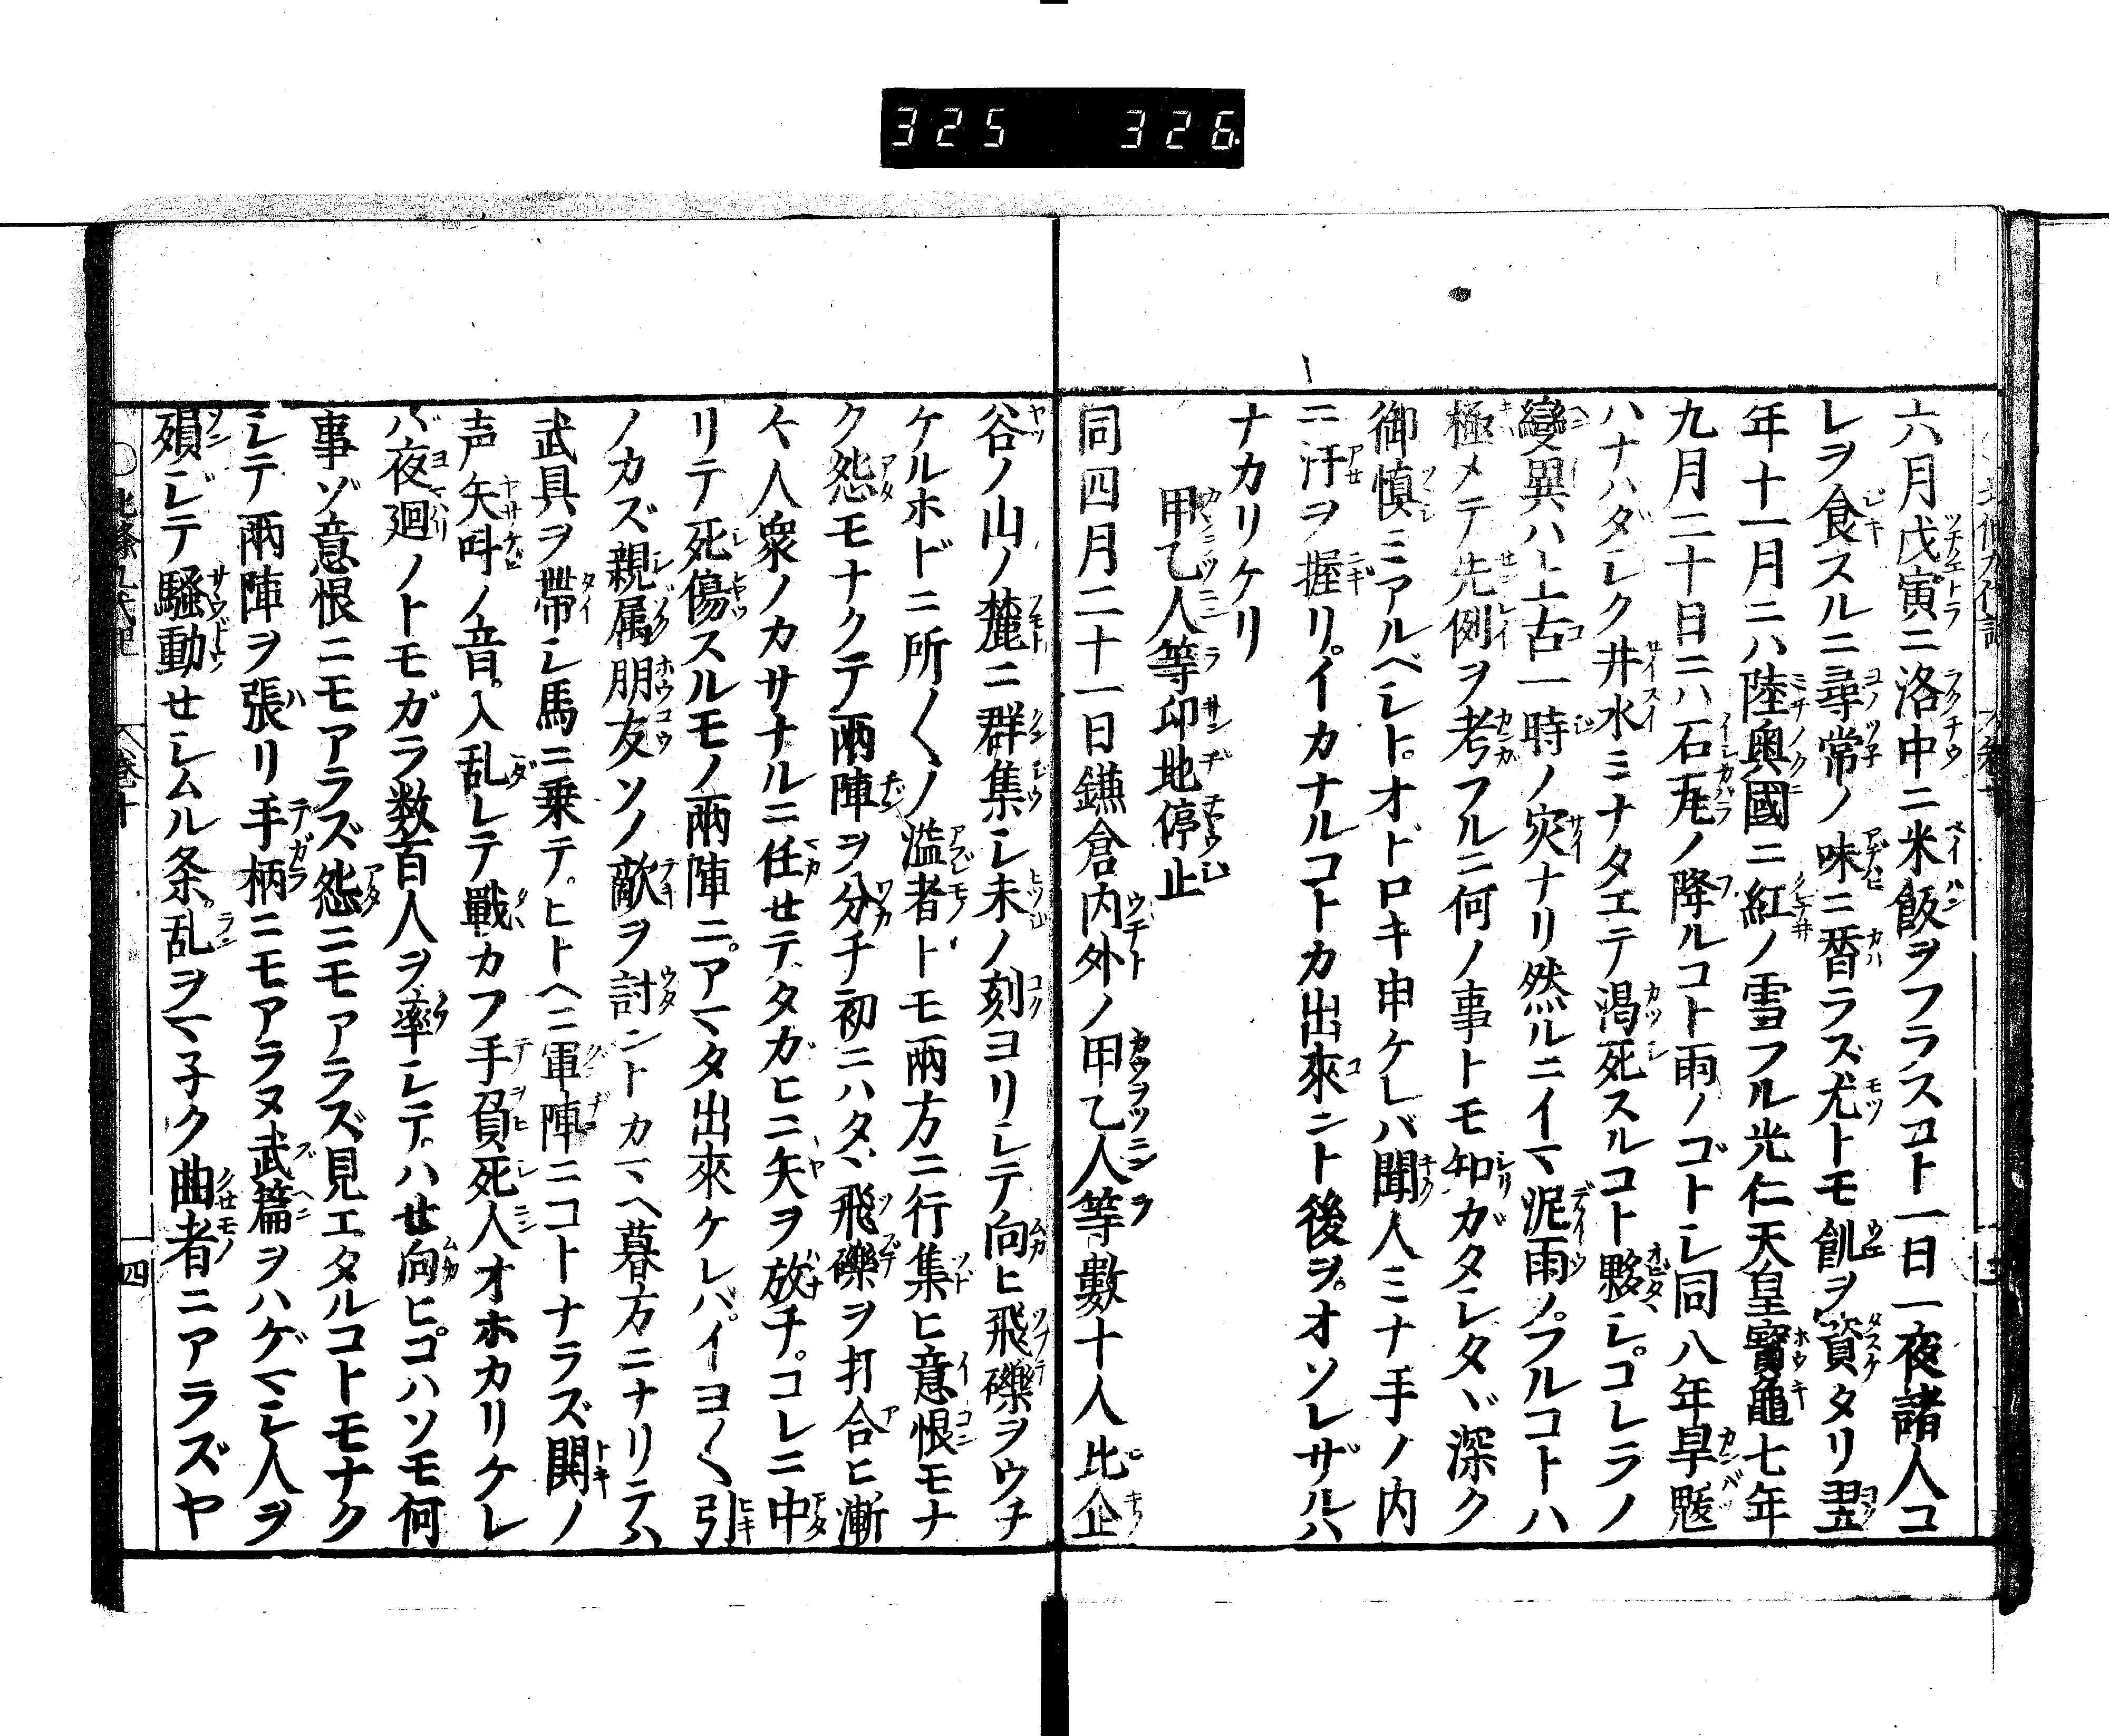 325 326
六月戊寅ニ洛中ニ米飯ヲフラスコト一日一夜諸人コ
レヲ食スルニ尋常ノ味ニ替ラズ尤トモ飢ヲ資タリ翌
年十一月ニハ陸奥國ニ紅ノ雪フル光仁天皇寳龜七年
九月二十日ニハ石瓦ノ降ルコト雨ノゴトシ同八年旱魃
ハナハダシク井水ミナタエテ渇死スルコト夥シ。コレラノ
變異ハ上古一時ノ災ナリ然ルニイマ泥雨ノフルコトハ
極メテ先例ヲ考フルニ何ノ事トモ知ガタシタヾ深ク
御慎ミアルベシト。オドロキ申ケレバ聞人ミナ手ノ内
ニ汗ヲ握リ。イカナルコトカ出來ント後ヲ。オソレザルハ
ナカリケリ
甲乙人等印地停止
同四月二十一日鎌倉内外ノ甲乙人等數十人比企
谷ノ山ノ麓ニ群集シ未ノ刻ヨリシテ向ヒ飛礫ヲウチ
ケルホドニ所〱ノ濫者トモ兩方ニ行集ヒ意恨モナ
ク怨モナクテ兩陣ヲ分チ初ニハタヾ飛礫ヲ打合ヒ漸
々人衆ノカサナルニ任せテタガヒニ矢ヲ放チ。コレニ中
リテ死傷スルモノ兩陣ニ。アマタ出來ケレバ。イヨ〱引
ノカズ親属朋友ソノ敵ヲ討ントカマヘ暮方ニナリテハ
武具ヲ帶シ馬ニ乗テ。ヒトヘニ軍陣ニコトナラズ関ノ
声矢叫ノ音。入乱レテ戰カフ手負死人オホカリケレ
バ夜廻ノトモガラ数百人ヲ率シテ。ハせ向ヒ。コハソモ何
事ゾ意恨ニモアラズ怨ニモアラズ見エタルコトモナク
シテ兩陣ヲ張リ手柄ニモアラヌ武篇ヲハゲマシ人ヲ
損ジテ騒動せシムル条。乱ヲマ子ク曲者ニアラズヤ
北條九代記 卷十 四